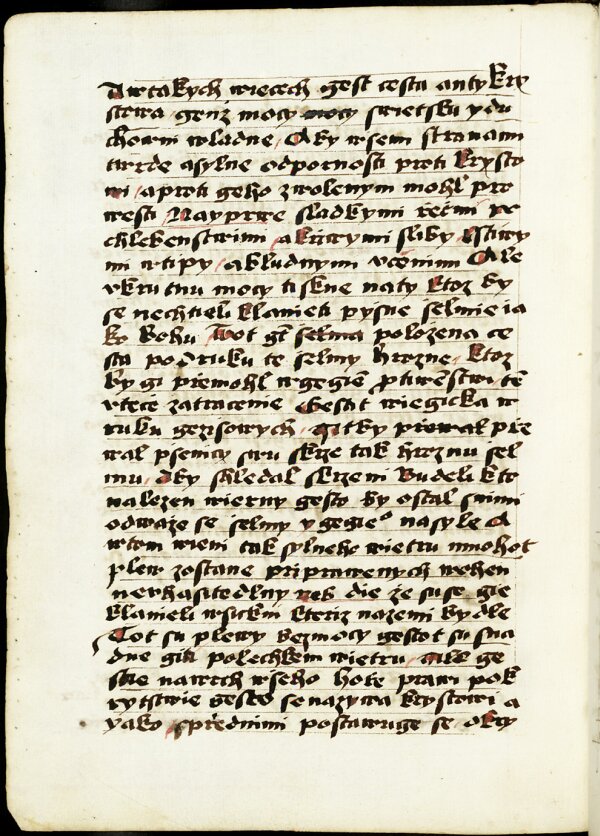 A w takych wiecech gest cesta antykry
stowa genz mocy mocy swietsku y du
chowni wladne / Aby w sem stranam
twrde a sylne odpornosti proti krysto
wi / a proti geho zwolenym mohl pro
westi / Nayprwe sladkymi řečmi pe
chlebenstwim / a krzywymi sliby / lstiwy
mi wtipy / a bludnym vcenim / Ale
vkrutnu mocy tiskne na ty ktoz by
se nechtieli klanieti pysne selmie ia
ko Bohu / Tot gt selma polozena ce
sta pod ruku te selmy hrozne / ktoz
by gi přemohl w gegie ptiwenstwi / te
vtece zatracenie / Gestit wiegicka w
ruku gezisowych / Gitky prewal pře
wal psenicy swu skrze tak hroznu sel
mu / Aby shledal skrzeni budeli kto
nalezen wierny gesto by ostal swimi
odwaze se selmy y gegieo nasyle A
w tom wieni tak sylneho wietru mnohot
plew zostane připrawenych w ohen
nevhasitedlny neb die ze su se gie
klanieli wsickni kteriz na zemi bydle
Tot su plewy bez mocy gestot su sna
dne giti polechkem wietru / Ale ge
stie na wrch wseho hoře prawi pok
rytstwie gesto se nazywa krystowi a
yako sprednimi postawuge se oky